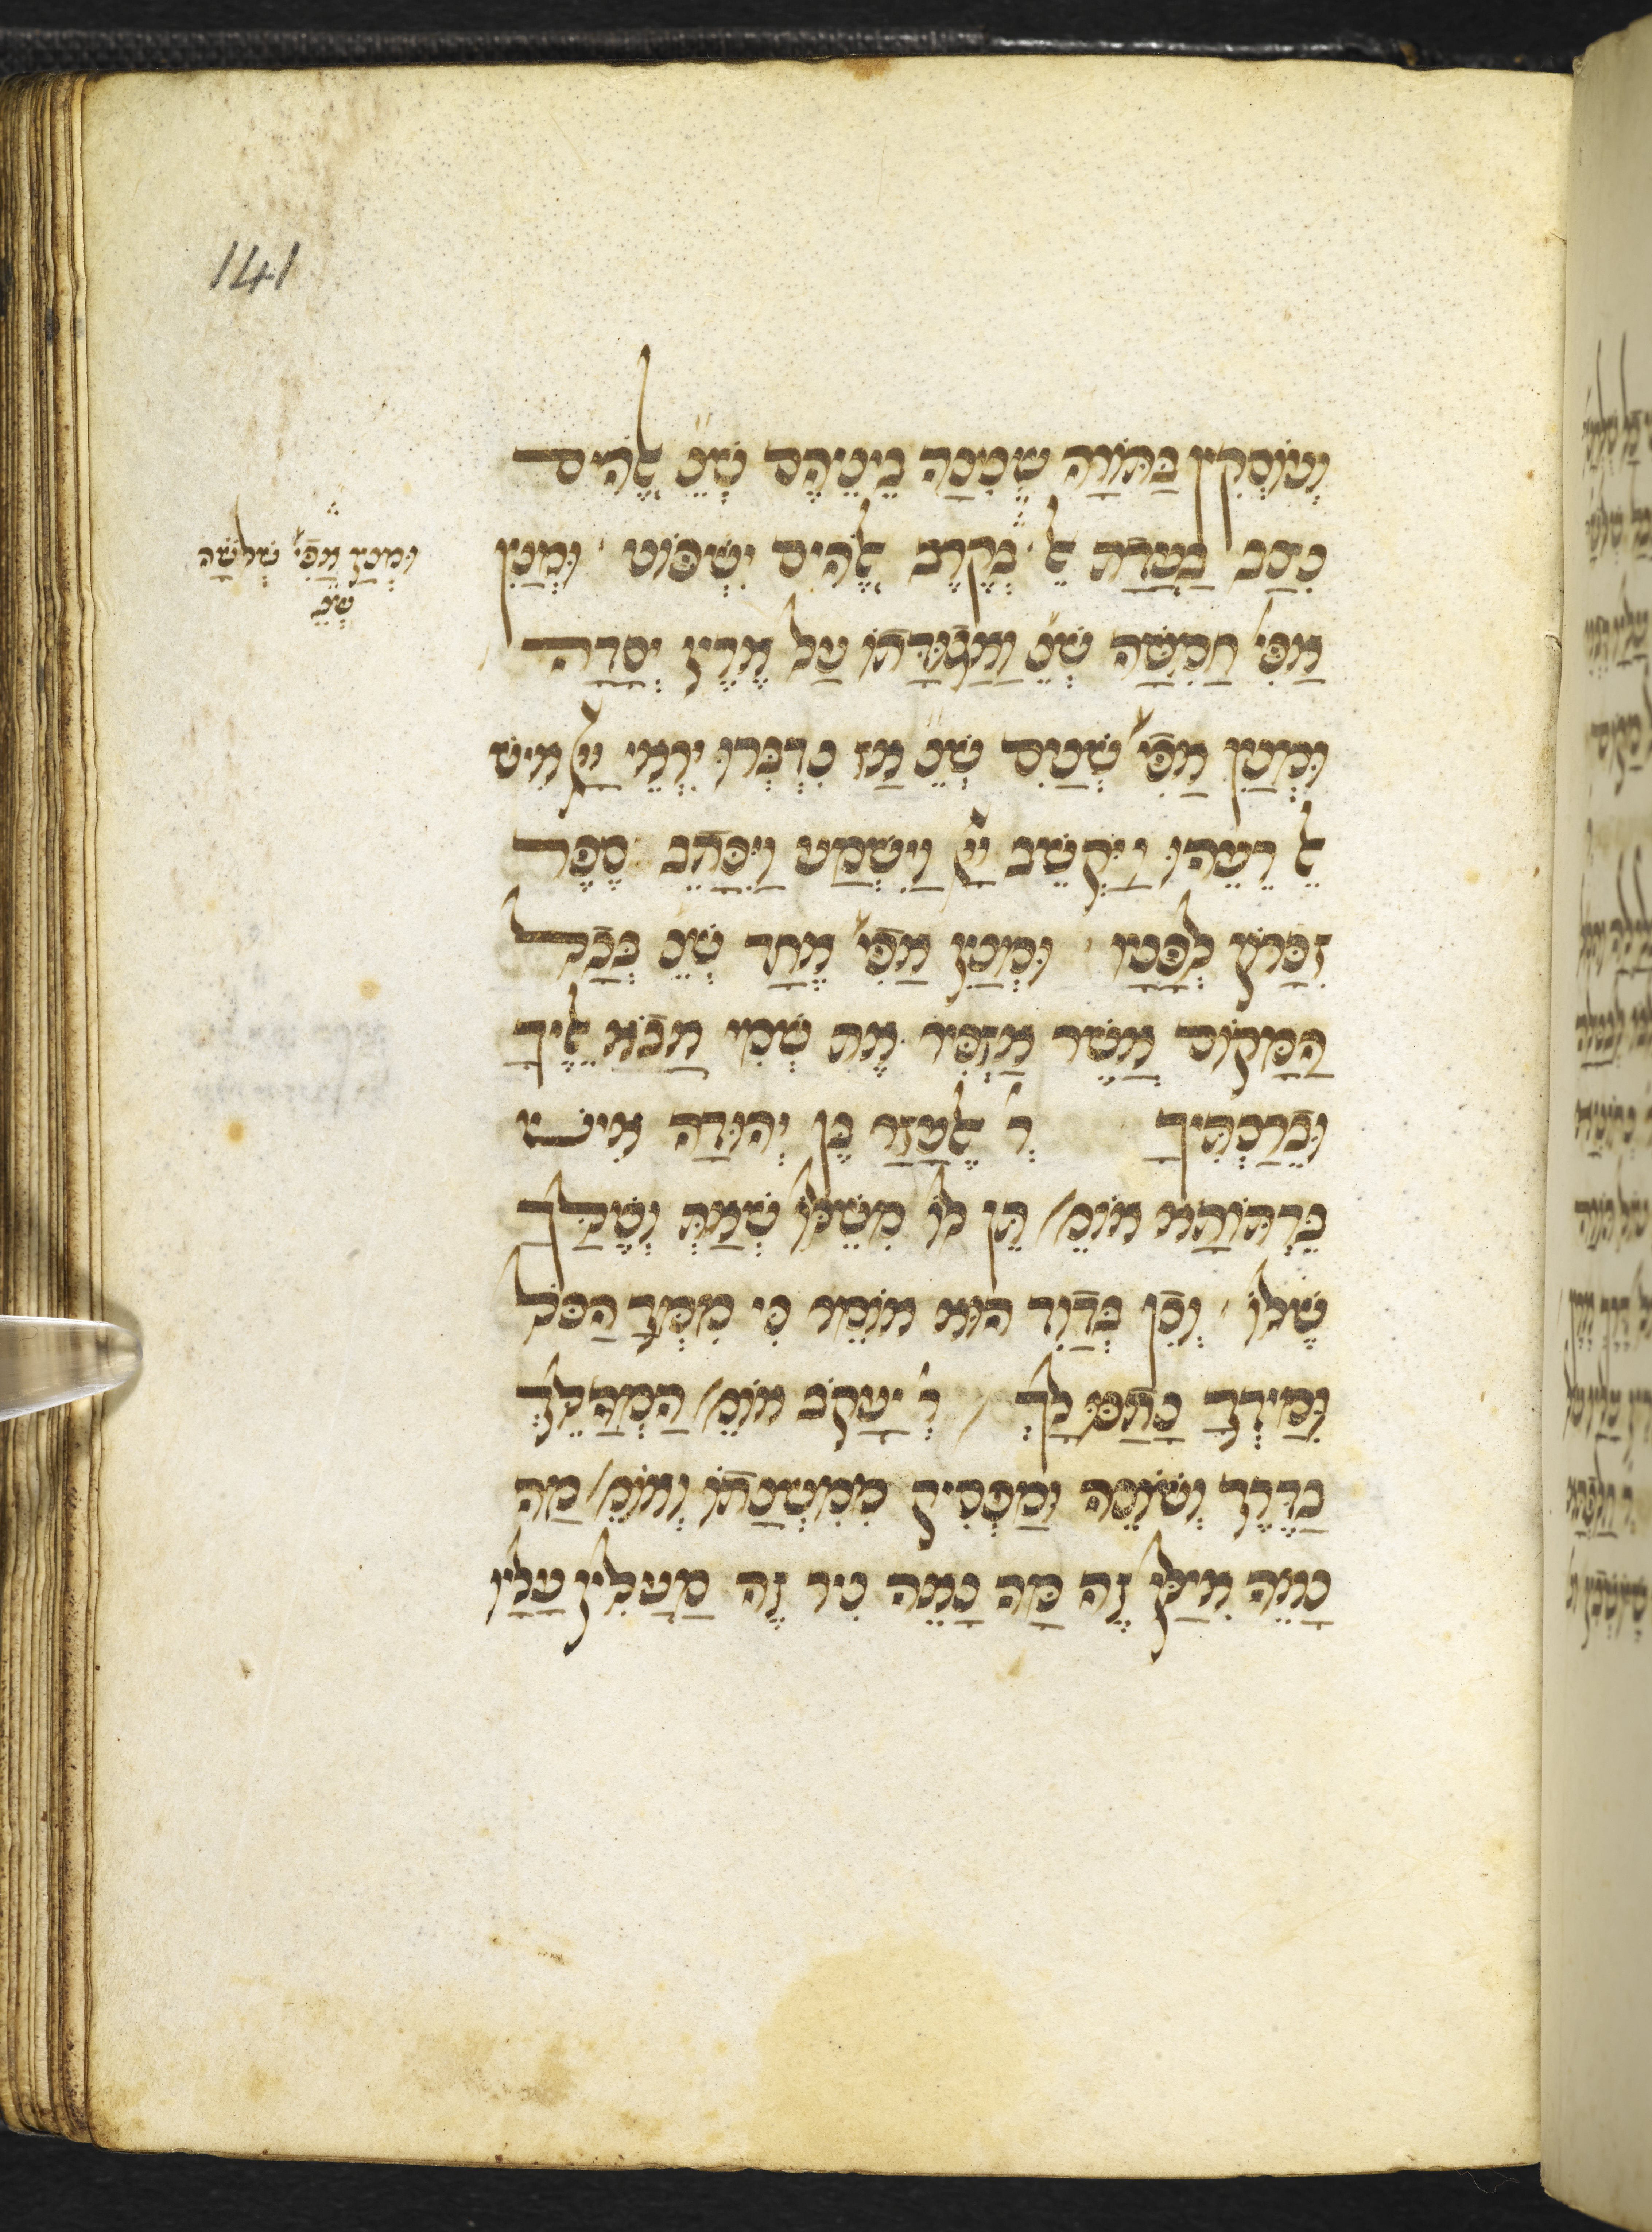 141
וְעוֹסְקִין בַּתּוֹרָה שְׁכִינָה בֵּינֵיהֶם שֶׁנֶּ׳ אֱלֹהִים
נִצָּב בַּעֲדַת אֵל בְּקֶרֶב אֱלֹהִים יִשְׁפּוֹט ׳ וּמְנַיִן
אֲפִי׳ חֲמִשָּׁה שֶׁנֶּ׳ וַאֲגוּדָּתוֹ עַל אֶרֶץ יְסָדָהּ
וּמְנַיִן אֲפִי׳ שְׁנַיִם שֶׁנֶּ׳ אָז נִדְבְּרוּ יִרְאֵי יְיָ אִישׁ
אֶל רֵעֵהוּ וַיַּקְשֵׁב יְיָ וַיִּשְׁמָע וַיִּכָּתֵב סֵפֶר
זִכָּרוֹן לְפָנָיו ׳ וּמְנַיִן אֲפִי׳ אֶחָד שֶׁנֶּ׳ בְּכָל
הַמָּקוֹם אֲשֶׁר אַזְכִּיר אֶת שְׁמִי אָבֹא אֵלֶיךָ
וּבֵרַכְתִּיךָ ר׳ אֶלְעָזָר בֶּן יְהוּדָה אִישׁ
בַּרְתּוֹתָא אוֹמֵ׳ תֶּן לוֹ מִשֶּׁלּוֹ שֶׁאַתְּ וְשֶׁלָּךְ
שֶׁלּוֹ ׳ וְכֵן בְּדָוִד הוּא אוֹמֵר כִּי מִמְּךָ הַכֹּל
וּמִיָּדְךָ נָתַנּוּ לָךְ ׳ ר׳ יַעֲקֹב אוֹמֵ׳ הַמְהַלֵּךְ
בַּדֶּרֶךְ וְשׁוֹנֶה וּמַפְסִיק מִמִּשְׁנָתוֹ וְאוֹמֵ׳ מַה
נָּאֶה אִילָן זֶה מַה נָּאֶה נִיר זֶה מַעֲלִין עָלָיו
וּמְנַיִן אֲפִי׳ שְׁלֹשָׁה
שֶׁנֶּ׳